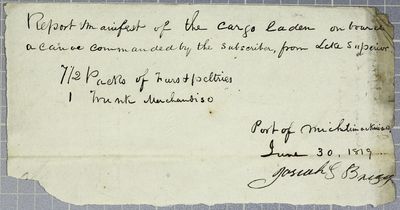 Report & manifest of the cargo laden on board
a canoe commanded by the subscriber, from Lake Superior
7½ Packs of Furs & peltries
1 Trunk Merchandise
Port of Michilimackinac
June 30, 1819
Josiah S Brigg